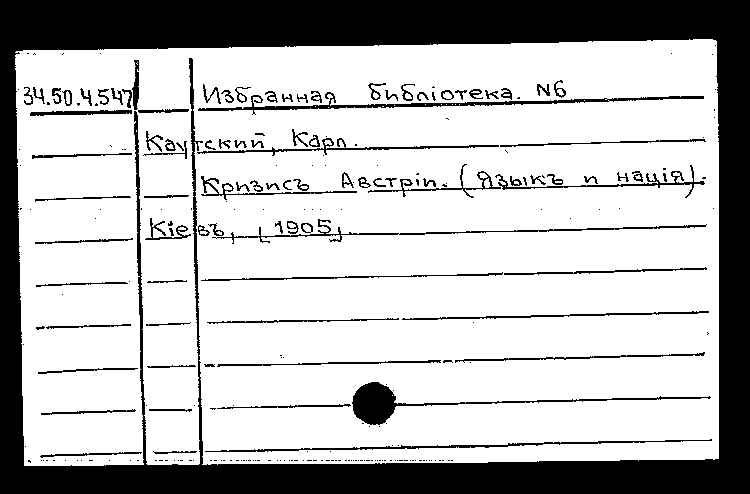 34.50.4.547 Избранная библіотека. N6
Каутский, Карл.
Кризисъ Австріи. (Языкъ и нація).
Кіевъ, [1905].